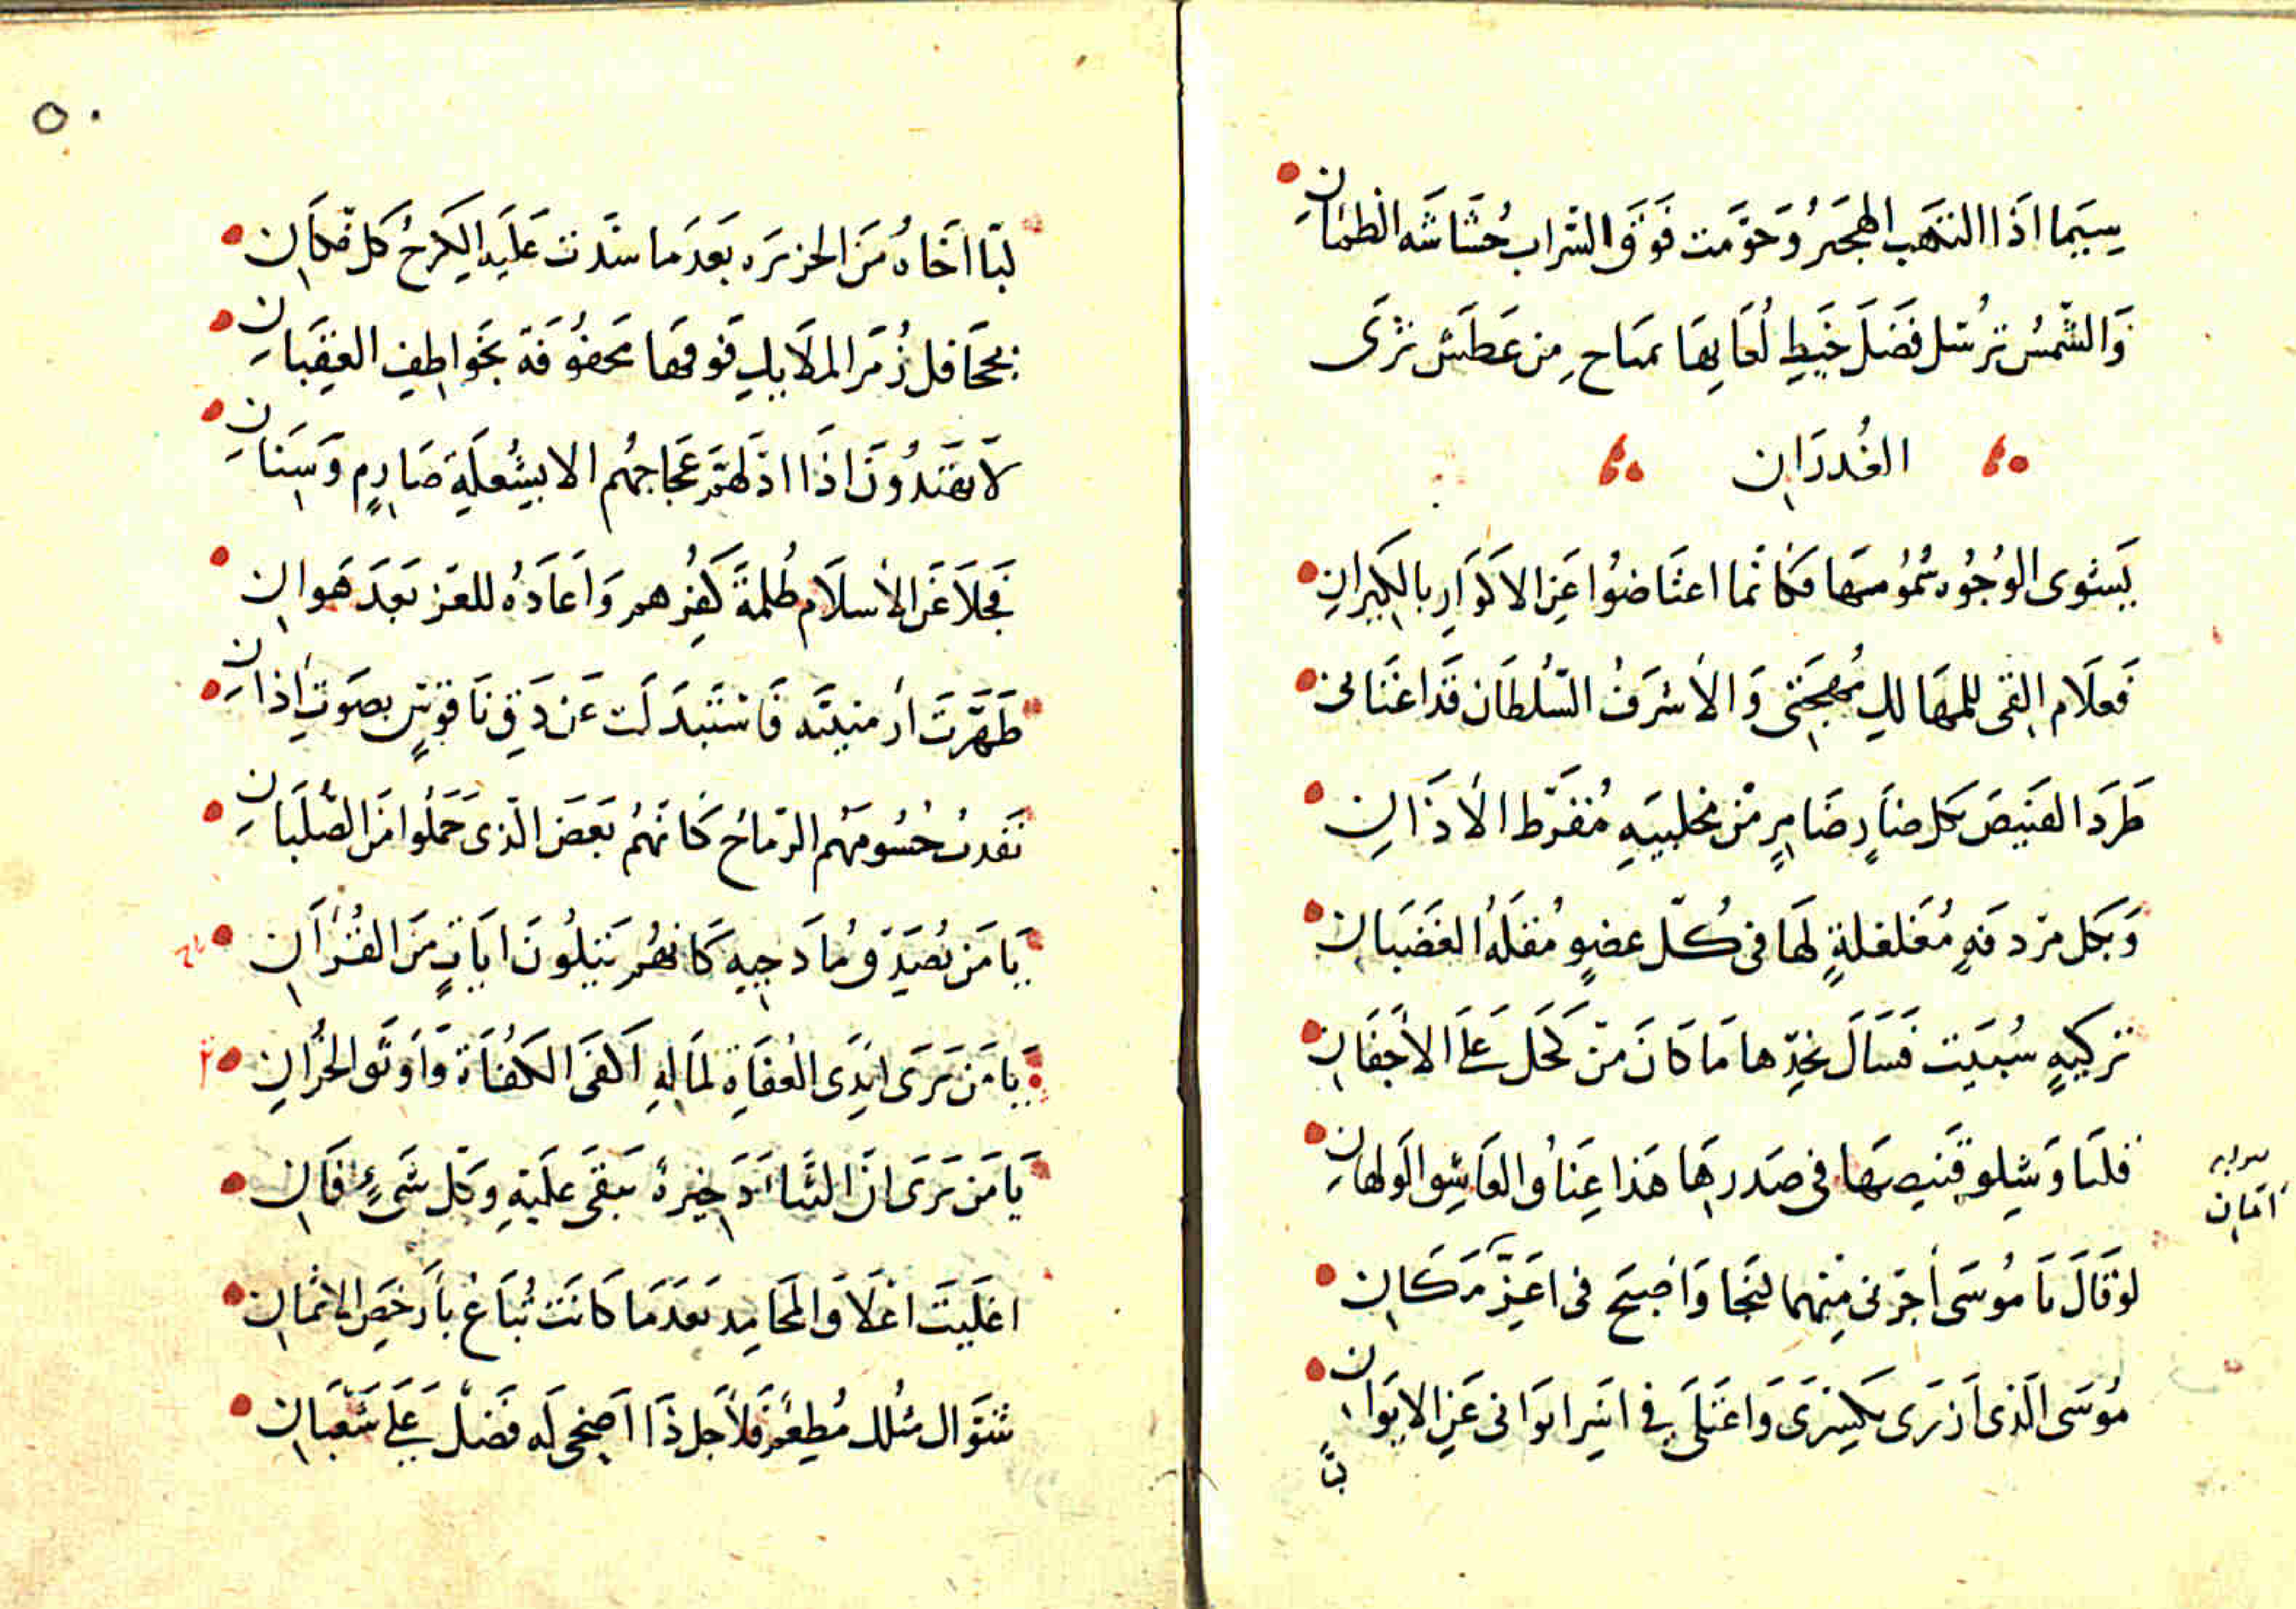 سِيَمَا اذَا التَهَب الهجَيرُ وَحَوَّمَت فَوقَ السّراب حُشَاشَه الظمئانِ
وَالشّمسُ تُرسل فَضَلَ خَيطِ لُعَابِهَا مِن عَطَشٍ تَرَى
الغُدرَانِ
يَشوى الوُجُوه سُمُومهَا فكَانما اعتَاضوُا عَنِ الاكوَارِ بالكِيرانِ
فَعلَام القى للمهَالكِ مُهجَتى وَالأشرَفُ السّلطَان قَد اغنَانى
طَرَدَ القَنيصَ بكل ضَارٍ ضَامِرٍ مِن مخلبيَهِ مُقَرّط الأذَانِ
وَبكل مُغَلغلةٍ لهَا فى كُلّ عضوٍ مُقلَهُ الغَضبَانِ
تركيهٍ سُبيَت فَسَالَ بخدّها مَا كَانَ مِن كحَلٍ عَلَى الأجفَانِ
وَشِلو قنيصهَا فى صَدرهَا هَذا عِنَاقُ العَاشِقِ الوَلهانِ
أمان
لو قَالَ يَا مُوسَى أجرنى مِنهما لنَجَا وَاصبَحَ فى اعَزّ مَكَانِ
مُوسَى الّذى ازرَى بكسرَى وَاعتَلَى فى عَنِ الايوَانِ
لبَّا
٥٠
لبّا اخَاهُ مَن الجزيرَه بَعدَ مَا سُدّت عَليَه الكرخُ كل مكَانِ
بجحَافل زُمَر الملَايكِ فَوقهَا مَحفوُفَة بخَواطِفِ العِقبَانِ
لَا يَهتَدُونَ اذَا ادلَهَمَّ عَجَاجهُم الا بِشُعلَةِ صَارِمٍ وَسِنَانِ
فَجلَا عَن الأسلَام ظُلمةَ كُفرِهم وَاعَادَهُ للعزّ بَعدَ هَوانِ
طَهَّرتَ أرمنيّه فَاستَبدَلَت عَن دَقِ نَاقوُسٍ بصَوتِ أذانِ
جُسُومَهُم الرّمَاحُ كَانّهُم بَعضَ الّذى حَمَلُوا مَن الصُلبَانِ
يَا مَن يُصَدّق مُادحِيه كَانهُم يَتلُونَ ايَاتٍ مَن القُرآنِ
يَا مَن يَرَى ايدِى العُفَاةِ لمَالِهِ اكفَى الكُفَاة وَاوثَق الخُزّانِ
يَا مَن يَرَى انّ الثَنَا ذَخِيرةٌ تبقَى عليَهِ وَكلّ شَىءٍ فَانِ
اغلَيتَ اعلَاقَ المحَامِدِ بَعدَمَا كَانَت تُبَاعُ بأَرخَصِ الاثمَانِ
شوَّال مثلك مُطعِمٌ فَلأجل ذَا اضحى لَه فَضلٌ عَلَى شَعبَانِ